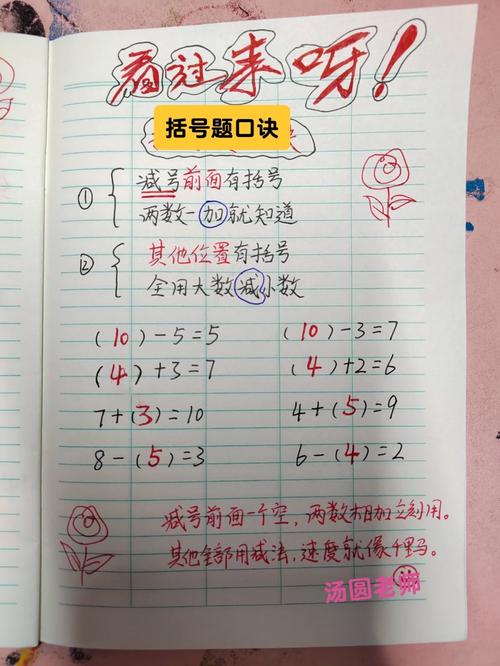 看过来呀！
括号题口诀
① 减号前面有括号
两数一加就知道
② 其他位置有括号
全用大数减小数
(10)-5=5 (10)-3=7
(4)+3=7 (4)+2=6
7+(3)=10 4+(5)=9
8-(5)=3 6-(4)=2
减号前面一个空，两数相加立刻用。
其他全部用减法，速度就像千里马。
汤圆老师